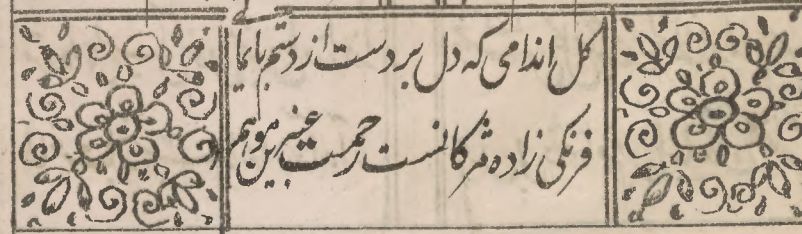 گل اندامی که دل بر دست از دستم بایما
فرنگی زاده مژکانست رحمت عنبرین مو هم